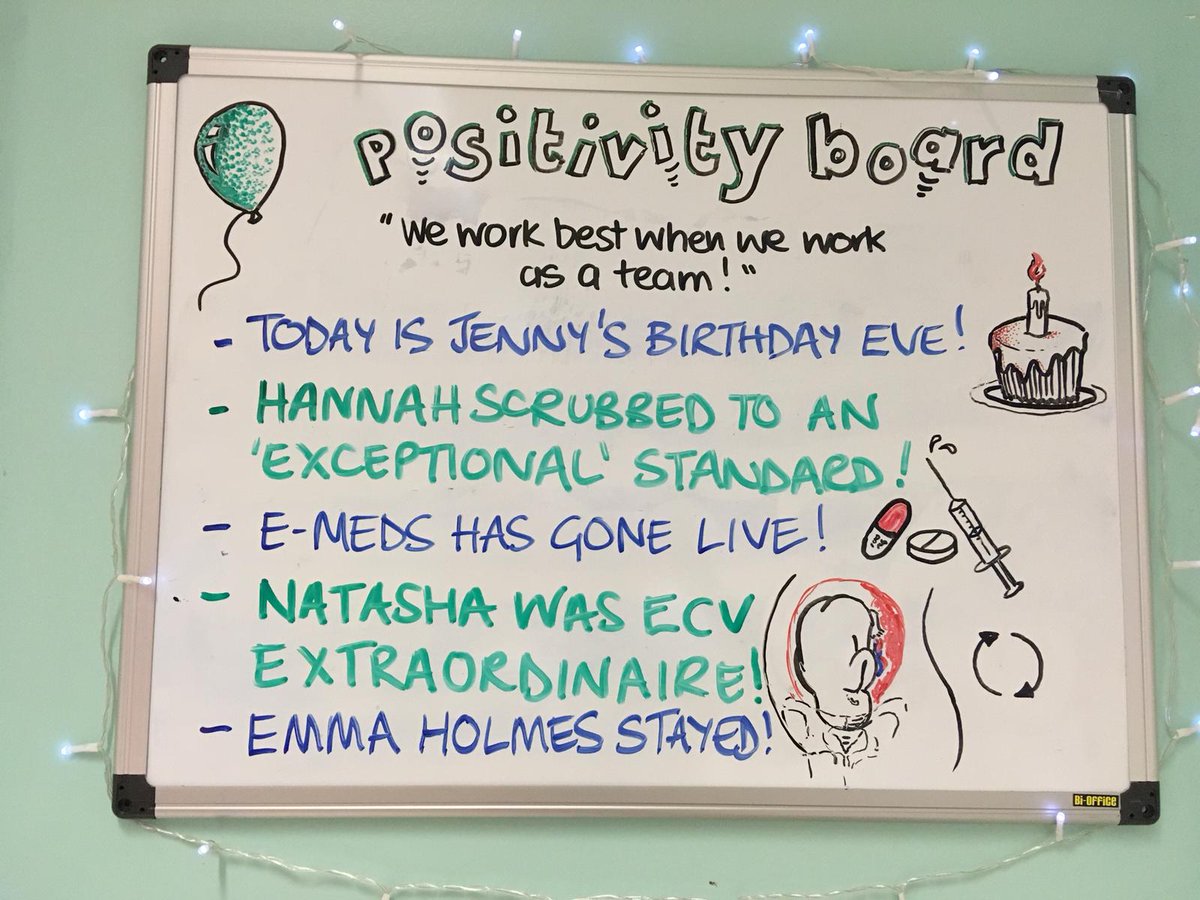 Positivity board
"We work best when we work
as a team!"
- TODAY IS JENNY'S BIRTHDAY EVE!
- HANNAH SCRUBBED TO AN
'EXCEPTIONAL' STANDARD!
- E-MEDS HAS GONE LIVE!
- NATASHA WAS ECV
EXTRAORDINAIRE!
- EMMA HOLMES STAYED!
Bi-Office